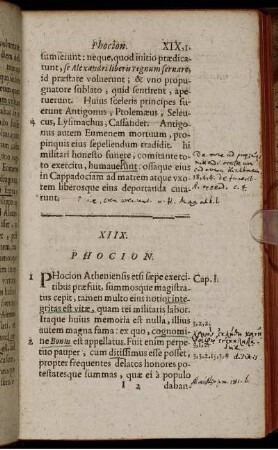 Phocion. XIX,1.
sumserunt: neque, quod initio prædica-
runt, se Alexandri liberis regnum servare,
id præstare voluerunt; & vno propu-
gnatore sublato, quid sentirent, ape-
ruerunt. Huius sceleris principes fue-
runt Antigonus, Ptolemæus, Seleu-
cus, Lysimachus, Cassander. Antigo-
nus autem Eumenem mortuum, pro-
pinquis eius sepeliendum tradidit. hi
militari honesto funere, comitante to-
to exercitu, humauerunt: ossaque eius
in Cappadociam ad matrem atque vxo-
rem liberosque eius deportanda cura-
runt.
XIIX.
PHOCION.
1 PHocion Atheniensis etsi sæpe exerci- Cap. I.
tibus præfuit, summosque magistra-
tus cepit, tamen multo eius notior inte-
gritas est vitæ, quam rei militaris labor.
Itaque huius memoria est nulla, illius
autem magna fama: ex quo, cognomi-
2 ne Bonus est appellatus. Fuit enim perpe-
tuo pauper, cum ditissimus esse posset
propter frequentes delatos honores po-
testatesque summas, quæ ei à populo
I 2 daban-